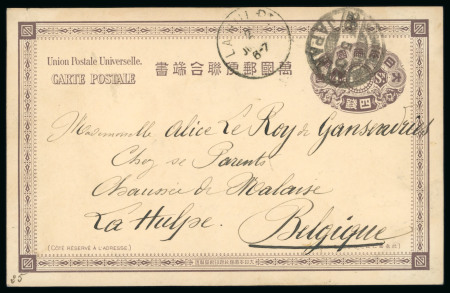 Union Postale Universelle.
CARTE POSTALE
書端合聯便郵國萬
JAPAN
四錢
Mademoiselle Alice Le Roy de
Chez ses Parents
Chaussée de Malaise
La Hulpe. Belgique
(CÔTÉ RÉSERVÉ À L'ADRESSE.)
25